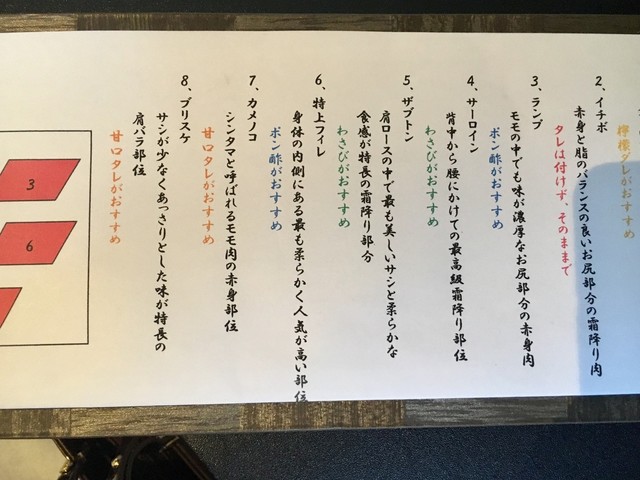 檸檬ダレがおすすめ
2、イチボ
赤身と脂のバランスの良いお尻部分の霜降り肉
タレは付けず、そのままで
3、ランプ
モモの中でも味が濃厚なお尻部分の赤身肉
ポン酢がおすすめ
4、サーロイン
背中から腰にかけての最高級霜降り部位
わさびがおすすめ
5、ザブトン
肩ロースの中で最も美しいサシと柔らかな
食感が特長の霜降り部分
わさびがおすすめ
6、特上フィレ
身体の内側にある最も柔らかく人気が高い部位
ポン酢がおすすめ
7、カメノコ
シンタマと呼ばれるモモ肉の赤身部位
甘口タレがおすすめ
8、ブリスケ
サシが少なくあっさりとした味が特長の
肩バラ部位
甘口タレがおすすめ
3
6